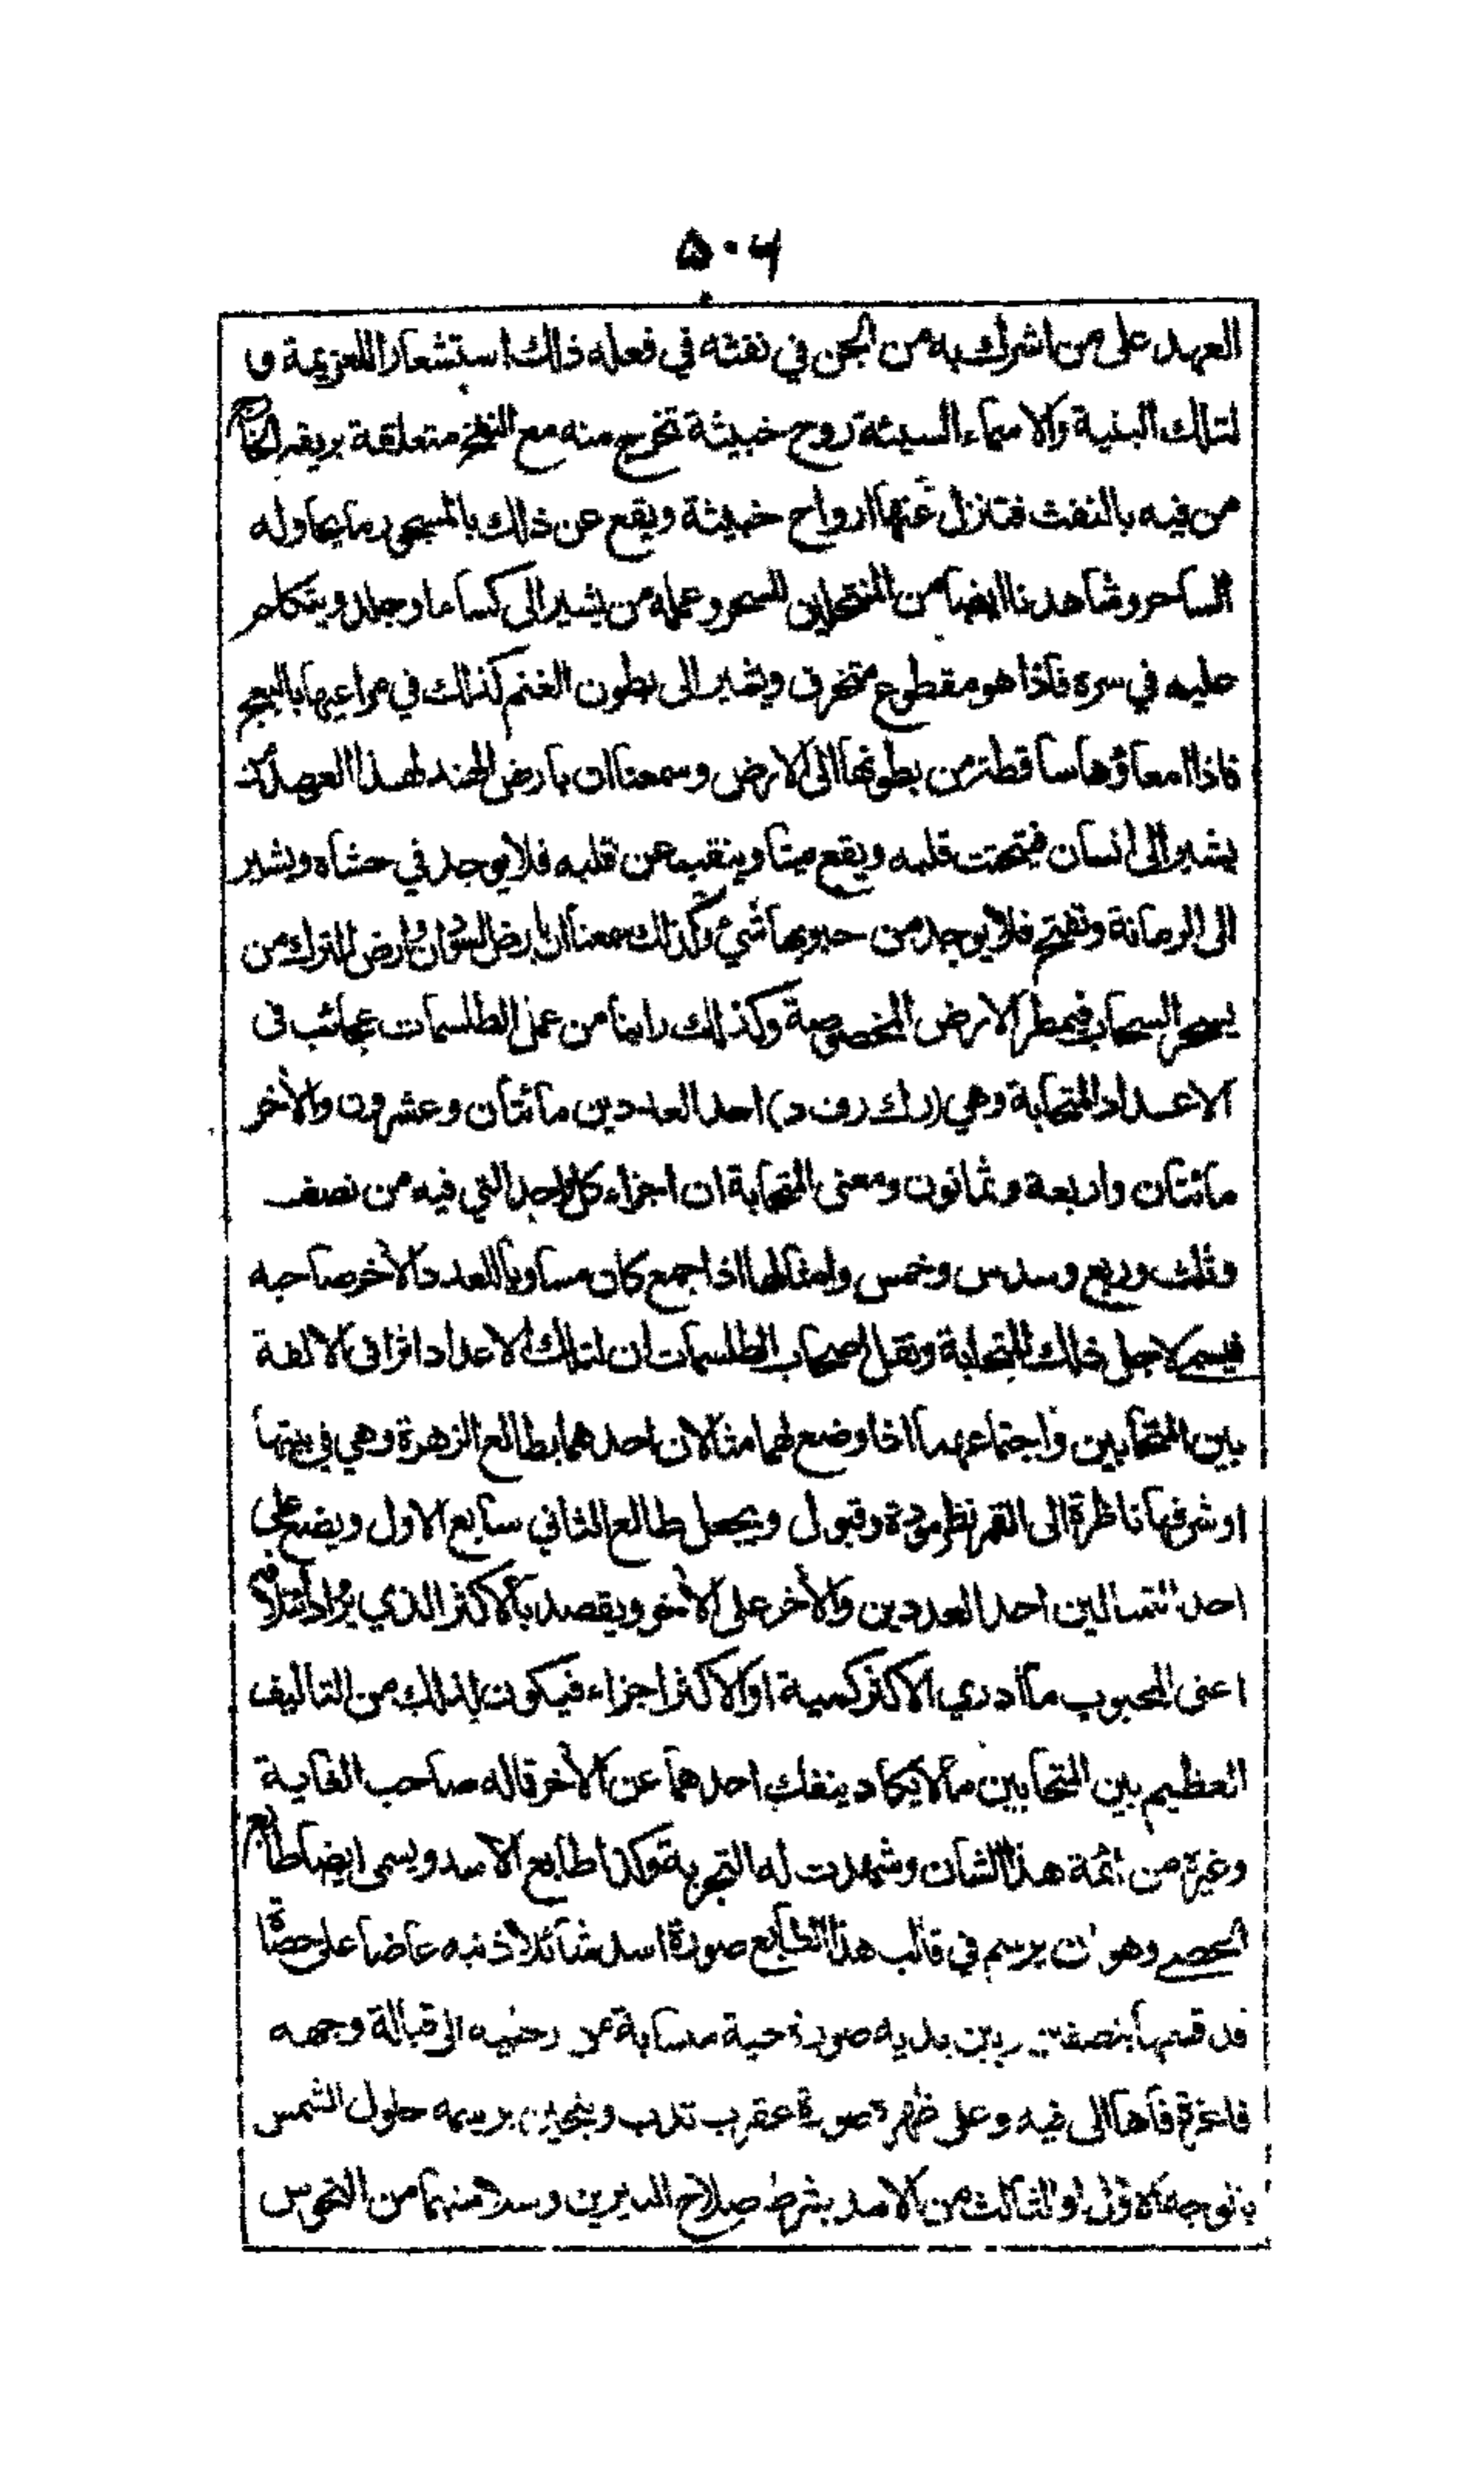 ۵۰۶
العهد على من اشرك به من الجن في نفثه في فعله ذلك استشعارا للعزيمة و
لتلك البنية والاسماء السيئة روح خبيثة تخرج منه مع النفخ متعلقة بريقه الخارج
من فيه بالنفث فتنزل عنها ارواح خبيثة ويقع عن ذلك بالمسحور ما يحاوله
الساحر وشاهدنا ايضا من المنتحلين للسحر وعمله من يشير الى كساء او جلد ويتكلم
عليه في سره فاذا هو مقطوع متخرق ويشير الى بطون الغنم كذلك في مراعيها بالبعج
فاذا امعاؤها ساقطة من بطونها الى الارض وسمعنا ان بارض الهند لهذا العهد من
يشير الى انسان فيتحتت قلبه ويقع ميتا وينقب عن قلبه فلا يوجد في حشاه ويشير
الى الرمانة وتفتح فلا يوجد من حبوبها شيئ وكذلك سمعنا ان بارض السودان وارض الترك من
يسحر السحاب فيمطر الارض المخصوصة وكذلك راينا من عمل الطلسمات عجائب في
الاعداد المتحابة وهي (رك رف د) احد العددين مائتان وعشرون والأخر
مائتان واربعة وثمانون ومعنى المتحابة ان اجزاء كل واحد التي فيه من نصف
وثلث وربع وسدس وخمس وامثالها اذا جمع كان مساويا للعدد الأخر صاحبه
فيسمى لاجل ذلك المتحابة ونقل اصحاب الطلسمات ان لتلك الاعداد اثرا في الالفة
بين المتحابين واجتماعهما اذا وضع لهما مثالان احدهما بطالع الزهرة وهي في بيتها
او شرفها ناظرة الى القمر نظر مودة وقبول ويجعل طالع الثاني سابع الاول ويضع على
احد التمثالين احد العددين والأخر على الأخر ويقصد بالاكثر الذي يراد ائتلافه
اعنى المحبوب ما ادري الاكثر كمية او الاكثر اجزاء فيكون لذلك من التاليف
العظيم بين المتحابين ما لا يكاد ينفك احدهما عن الأخر قاله صاحب الغاية
وغيره من ائمة هذا الشان وشهدت له التجربة وكذا طابع الاسد ويسمى ايضا طابع
الحصى وهو ان يرسم في قالب هذا الطابع صورة اسد شائلا ذنبه عاضا على حصاة
قد قسمها بنصفين وبين يديه صورة حية منسابة من رجليه الى قبالة وجهه
فاغرة فاها الى فيه وعلى ظهره صورة عقرب تدب ويتحين برسمه حلول الشمس
بالوجه الاول او الثالث من الاسد بشرط صلاح النيرين وسلامتهما من النحوس